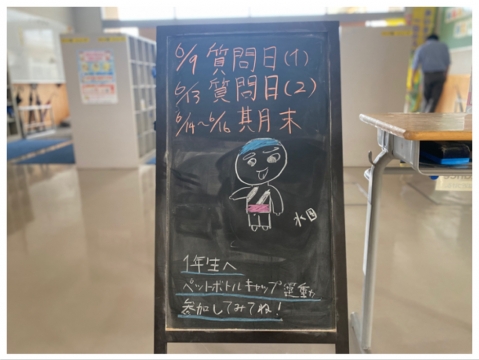 6/9 質問日(1)
6/13 質問日(2)
6/14～6/16 期末
1年生へ
ペットボトルキャップ運動
参加してみてね!